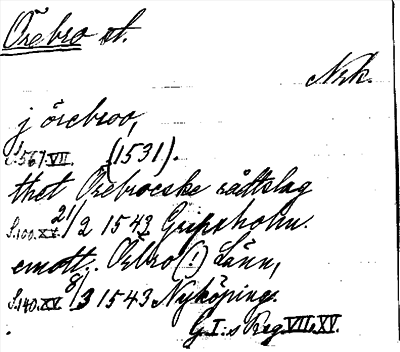 Örebro st.
Nrk.
j örebroo,
s. 567. VII. (1531).
thet Örebroeske rådtslag
s. 100. XV. 21/2 1543 Gripsholm.
emott. Örbro (!) Länn,
s. 140. XV 8/3 1543 Nyköping.
G. I:s Reg. VII. XV.